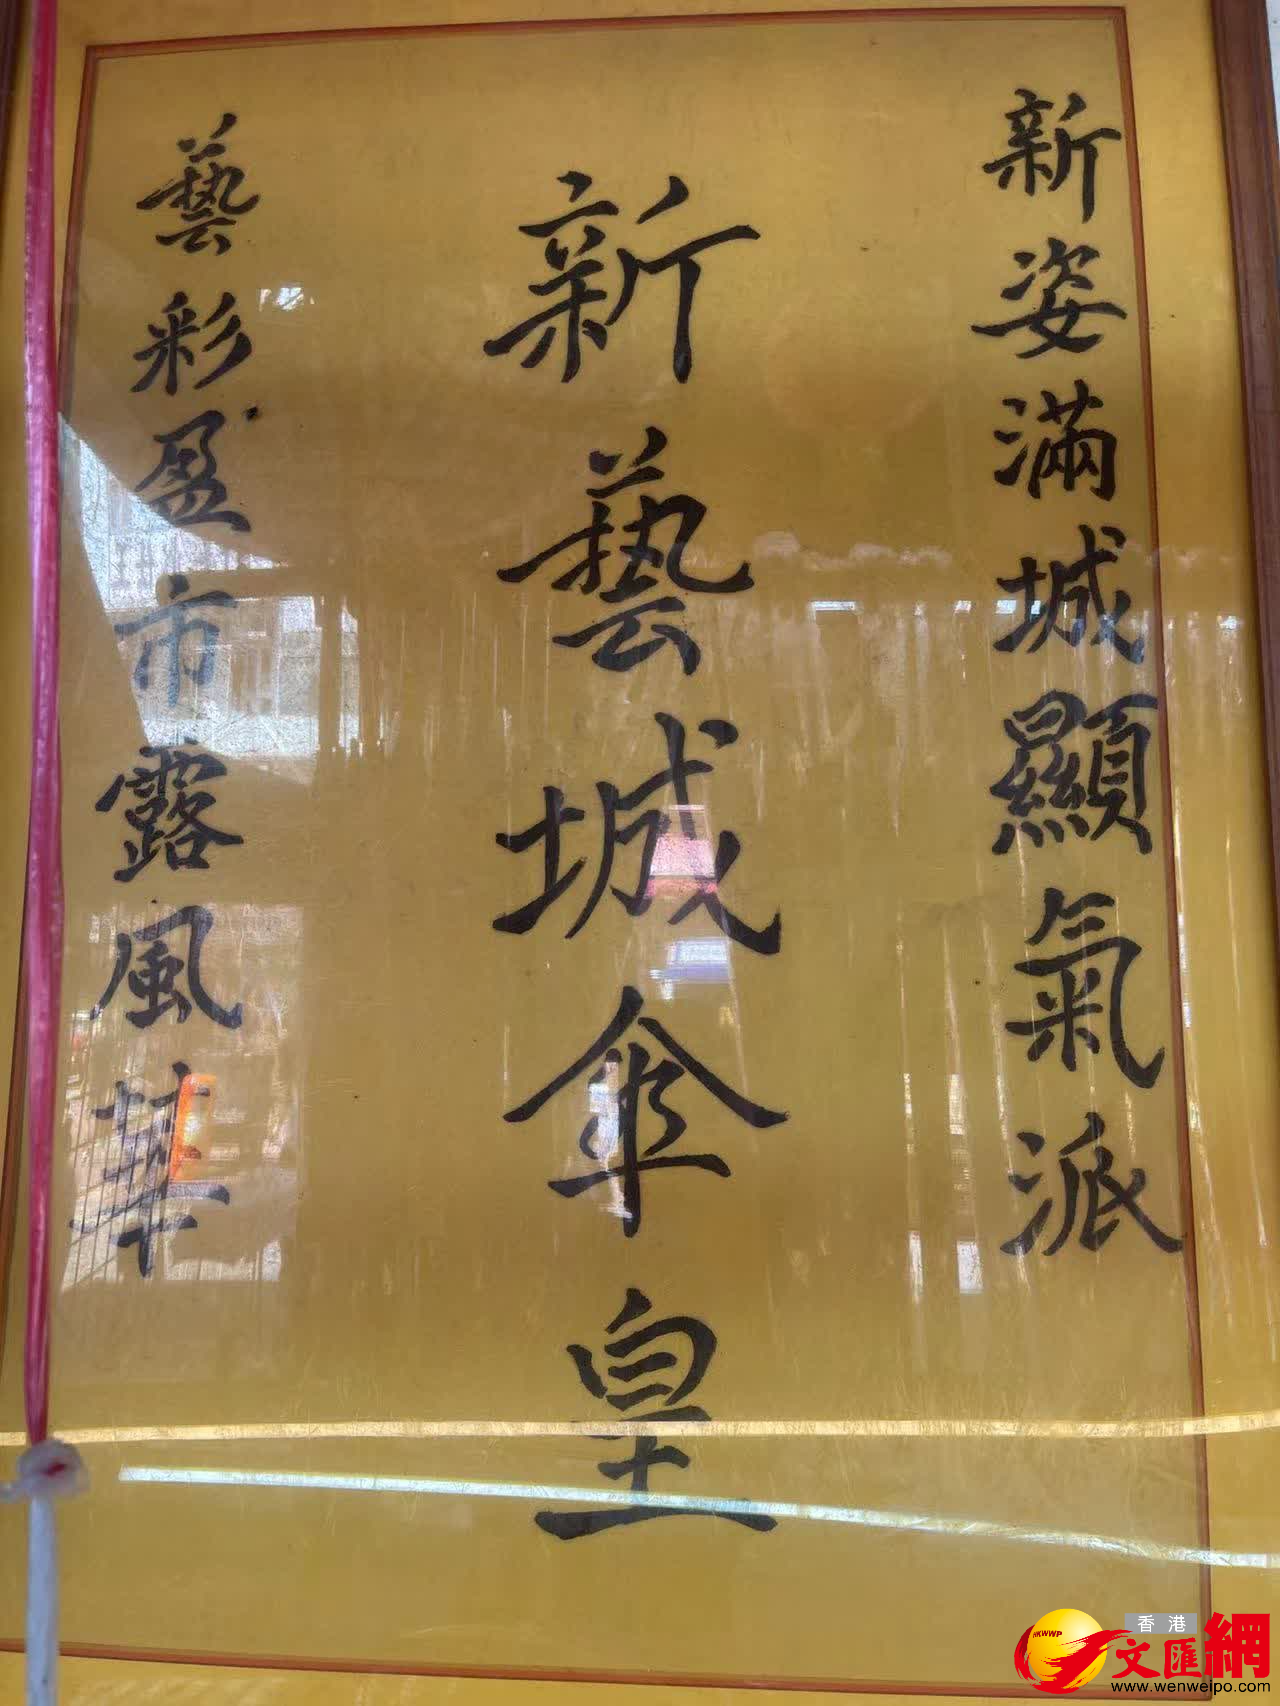 新姿滿城顯氣派
新藝城傘皇
藝彩盈市露風華
HKWWP
香港
文匯網
www.wenweipo.com